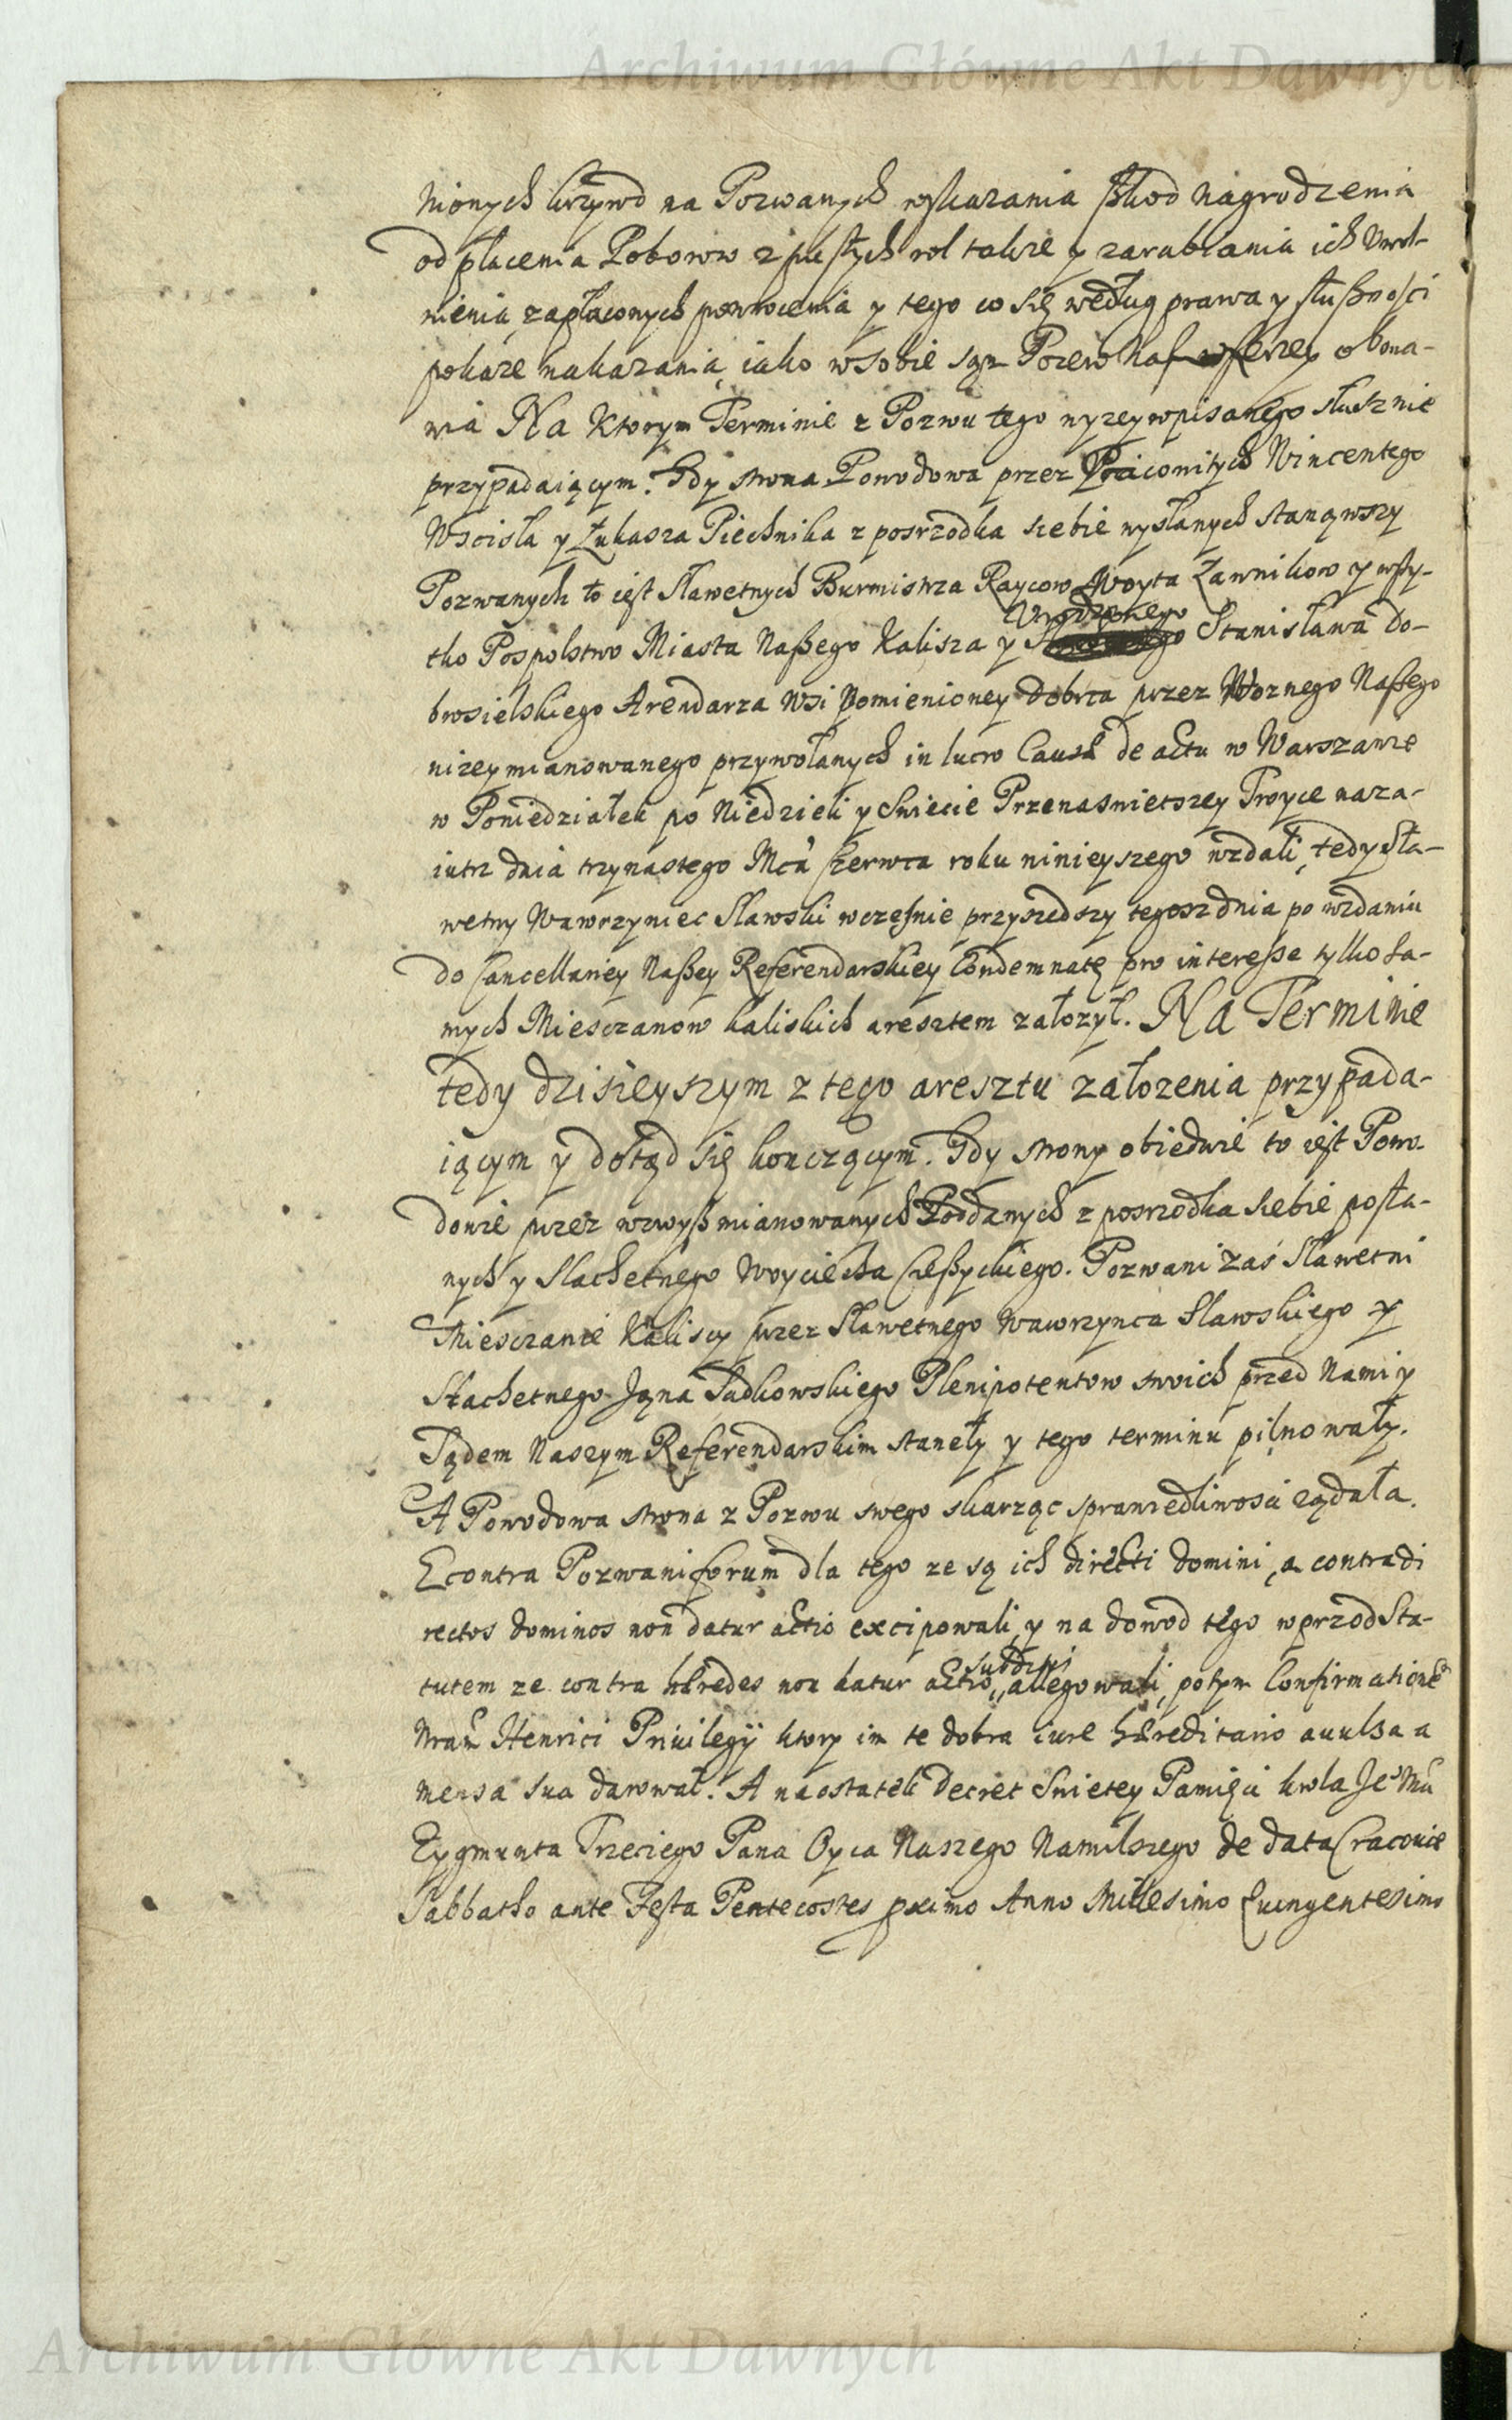 Archiwum Główne Akt Dawnych
nionych krzywd na Pozwanych wskazania szkod nagrodzenia
od płacenia Poborow z pustych rol także y zarabiania ich Uwol-
nienia zapłaconych powrocenia y tego co się według prawa y słuszności
pokaże nakazania, iako w sobie sam Pozew Nasz szerzey obma-
wia Na Ktorym Terminie z Pozwu tego wyżey wpisanego słusznie
przypadaiącym. Gdy strona Powodowa przez Pracowitych Wincentego
Wscisła y Łukasza Piechnika z posrzodka siebie wysłanych stanąwszy
Pozwanych to iest Sławetnych Burmistrza Raycow Woyta Ławnikow y wszy-
Urodzonego
tko Pospolstwo Miasta Naszego Kalisza y Stanisława Do-
brosielskiego Arendarza Wsi Pomienioney Dobrca przez Woznego Naszego
niżey mianowanego przywołanych in lucro Causæ de actu w Warszawie
w Poniedziałek po Niedzieli y Swięcie Przenaswietszey Troyce naza-
iutrz dnia trzynastego Mca Czerwca roku ninieyszego wzdali, tedy Sła-
wetny Wawrzyniec Slawski wcześnie przyszedszy tegosz dnia po wzdaniu
do Cancellariey Naszey Referendarskiey Condemnatę pro interesse tylko sa-
mych Miesczanow kaliskich aresztem założył. Na Terminie
tedy dzisieyszym z tego aresztu założenia przypada-
iącym y dotąd się konczącym. Gdy strony obiedwie to iest Powo-
dowie przez wzwysz mianowanych Poddanych z posrzodka siebie posła-
nych y Slachetnego Woyciecha Cieszyckiego. Pozwani zaś Sławetni
Miesczanie Kaliscy przez Sławetnego Wawrzynca Slawskiego y
Slachetnego Jana Sadkowskiego Plenipotentow swoich przed Nami y
Sądem Naszym Referendarskim staneły y tego terminu pilnowały.
A Powodowa strona z Pozwu swego skarząc sprawiedliwosci ządała.
Econtra Pozwani forum dla tego ze są ich directi domini, a contra di
rectos dominos non datur actio excipowali, y na dowod tego wprzod Sta-
subditis
tutem ze contra hæredes non datur actio,, allegowali, potym Confirmationē
Nram Henrici Priuilegij ktory im te dobra iure hæreditario auulsa a
mensa sua darował. A naostatek Decret Swietey Pamięci krola Je° Mci
Zygmunta Trzeciego Pana Oyca Naszego Namilszego de data Cracouiæ
Sabbatho ante Festa Pentecostes pximo Anno Millesimo Quingentesimo
Archiwum Główne Akt Dawnych